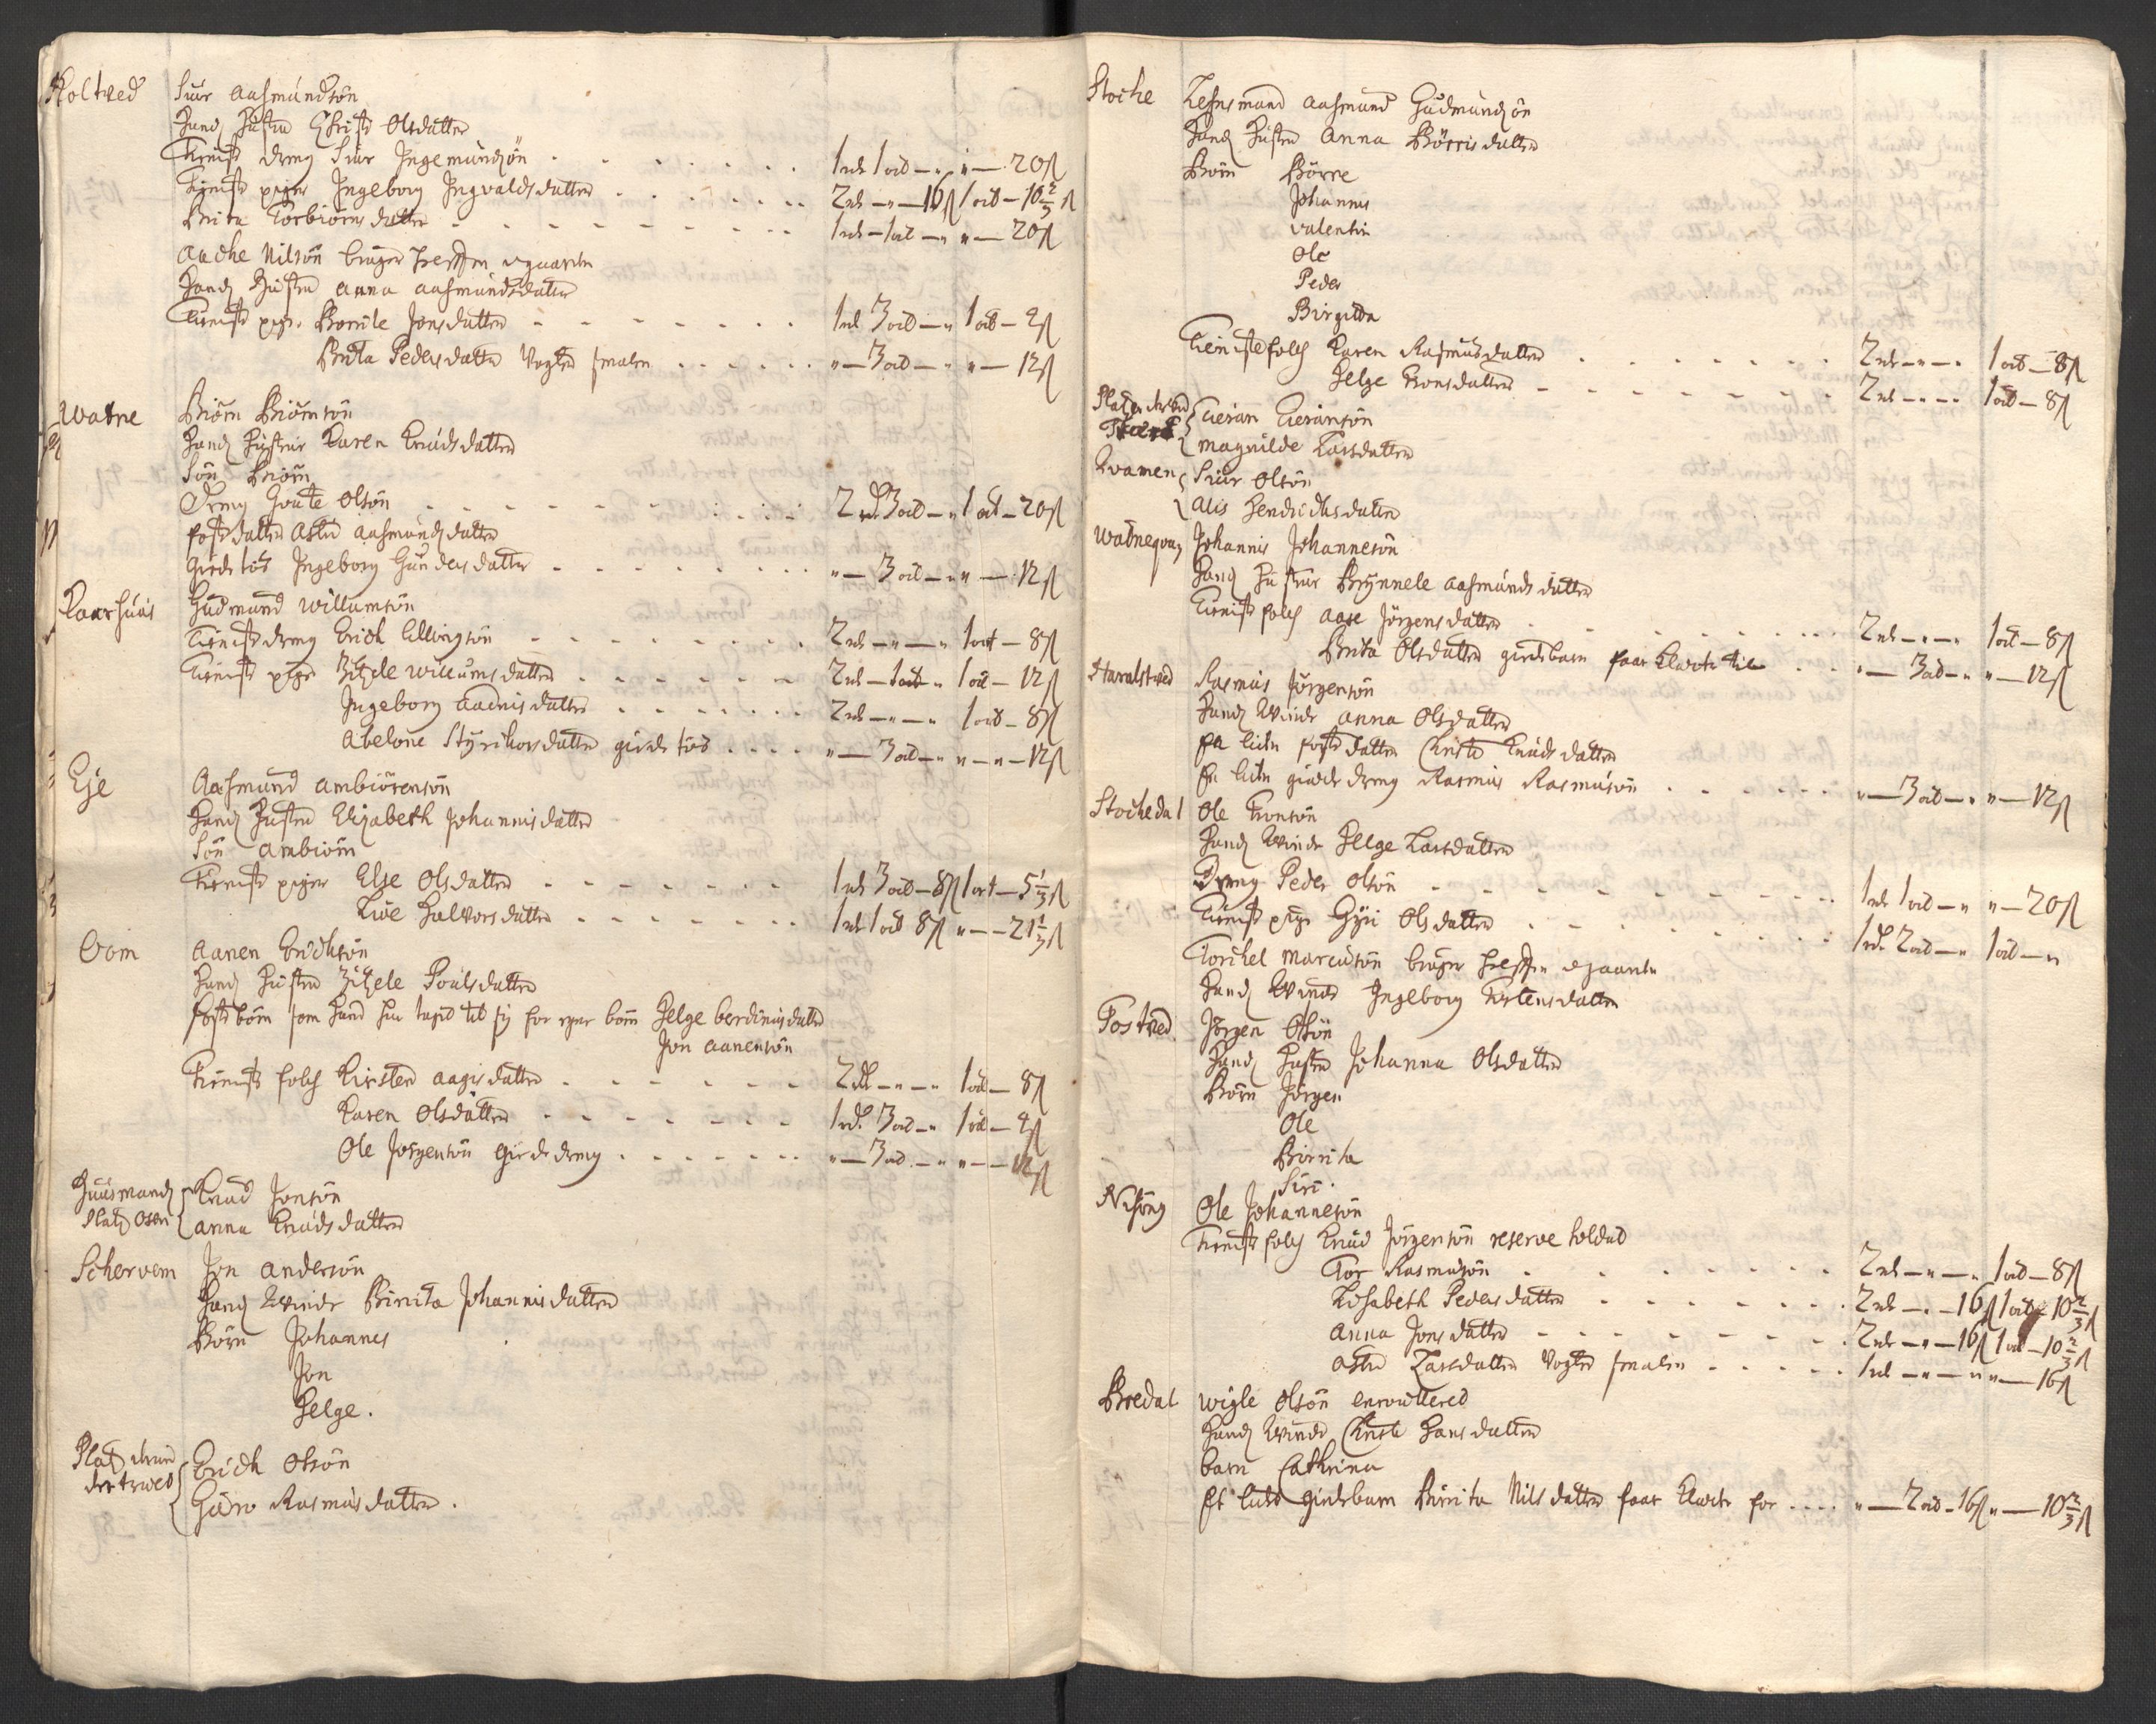 Holtved Siur Aasmundsøn
Hands Hustru Christi Olsdatter
Tieniste dreng Siur Ingemundsøn - - - - 1 rd 1 ort - " " - 20 ß
Tieniste piger Ingeborg Ingvaldsdatter - - - - 2 rd - " - 16 ß 1 ort - 10 2/3 ß
Brita Torbiørnsdatter - - - - 1 rd - 1 ort - " " - 20 ß
Nilsøn bruger gaarden
Hands Hustru Anna Aasmundsdatter
Tieniste pige Jonsdatter - - - - 1 rd 3 ort - " 1 ort - 4 ß
Brita Pedersdatter Vogter smalen - - - - " - 3 ort - " " - 12 ß
Watne Biørn Biørnsøn
Hands Hustrue Karen Knudsdatter
Søn Biørn
Dreng Goute Olsøn - - - - 2 rd 3 ort - " 1 ort - 20 ß
foster datter Astri Aasmundsdatter
Giede tøs Ingeborg Gundersdatter - - - - " - 3 ort - " " - 12 ß
Kaarhuus Gudmund Willumsøn
Tieniste dreng Erich Ellingsøn - - - - 2 rd - " - " 1 ort - 8 ß
Tieniste pige Zitzele Willumsdatter - - - - 2 rd - 1 ort " 1 ort - 12 ß
Ingeborg datter - - - - 2 rd - " - " 1 ort - 8 ß
Abelone datter giede tøs - - - - " - 3 ort - " " - " - 12 ß
Eje Aasmund Ambiørensøn
Hands Hustru Elisabeth Johannisdatter
Søn Ambiørn
Tieniste piger Else Olsdatter - - - - 1 rd 3 ort - 8 ß 1 ort - 5 1/3 ß
Live Halvorsdatter - - - - 1 rd 1 ort 8 ß " - - 21 1/3 ß
Oom Aanen Erichsøn
Hands Hustru Zitzele Poulsdatter
foster børn som hand har taget til sig for egne børn Helge datter
Jon Aanensøn
Tieniste folch Kirsten Aagisdatter - - - - 2 rd - " - " 1 ort - 8 ß
Karen Olsdatter - - - - 1 rd 3 ort - " 1 ort - 4 ß
Ole Jørgensøn giede dreng - - - - " - 3 ort - " " - - 12 ß
Huusmands Knud Jonsøn
Plads Osen Anna Knudsdatter
Schervem Jon Andersøn
Hands Qvinde Birita Johannisdatter
Børn Johannes
Jon
Helge.
Plads Erich Olsøn
Guro Rasmusdatter.
Stoche Lehnsmand Aasmund Gudmundsøn
Hands Hustru Anna Børrisdatter
Børn Børre
Johannis
Valentin
Ole
Peder
Birgitta
Tieniste folch Karen Rasmusdatter - - - - 2 rd - " - " 1 ort - 8 ß
Helge Tronsdatter - - - - 2 rd - " - " 1 ort - 8 ß
Plads Tieran Tieransøn
Magnilde Larsdatter
Kvamen Siur Olsøn
Alis Hendrichsdatter
Watneqvaj Johannis Johannesøn
Hands Hustrue Brynnele Aasmundsdatter
Tieniste folch Aase Jørgensdatter - - - - 2 rd - " - " 1 ort - 8 ß
Brita Olsdatter giedebarn faar Klæde til - - " - 3 ort - " " - 12 ß
Haralstved Rasmus Jørgensøn
Hands Qvinde Anna Olsdatter
En liden foster datter Christi Knudsdatter
En liden giede dreng Rasmus Rasmusøn - - - - " - 3 ort - " " - 12 ß
Stochedal Ole Tronsøn
Hands Qvinde Helge Larsdatter
Dreng Peder Olsøn - - - - 1 rd 1 ort - " " - 20 ß
Tieniste pige Gyri Olsdatter - - - - 1 rd 2 ort - " 1 ort - "
Torchel Marcusøn bruger gaarden
Hands Qvinde Ingeborg Tostensdatter
Tostved Jørgen Olsøn
Hands Hustru Johanna Olsdatter
Børn Jørgen
Ole
Birrita
Siri.
Ole Johannesøn
Tieniste folch Knud Jørgensøn reserve soldat
Tor Rasmusøn - - - - 2 rd - " - " 1 ort - 8 ß
Lisabeth Pedersdatter - - - - 2 rd - " - 16 ß 1 ort - 10 2/3 ß
Anna Jonsdatter - - - - 2 rd - " - 16 ß 1 ort - 10 2/3 ß
Astri Larsdatter Vogter smalen - - - - 1 rd - " - " " - 16 ß
Bredal Wigle Olsøn enroullered
Hands Qvinde Christi Hansdatter
barn Cathrina
Et lidet giedebarn Birrita Nilsdatter faar Klæde for - - - - " - 2 ort - 16 ß " - 10 2/3 ß